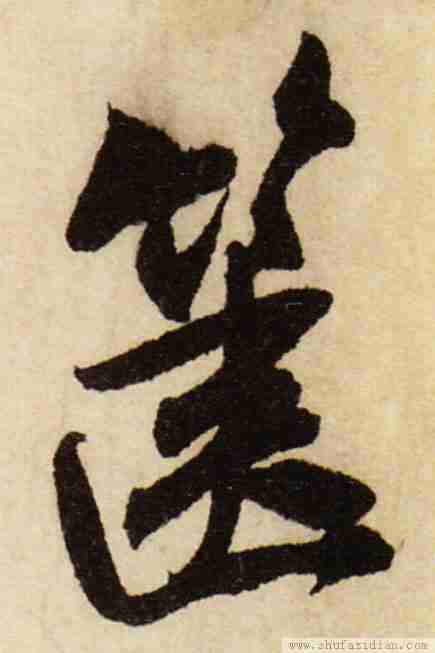 篋
www.shufazidian.com